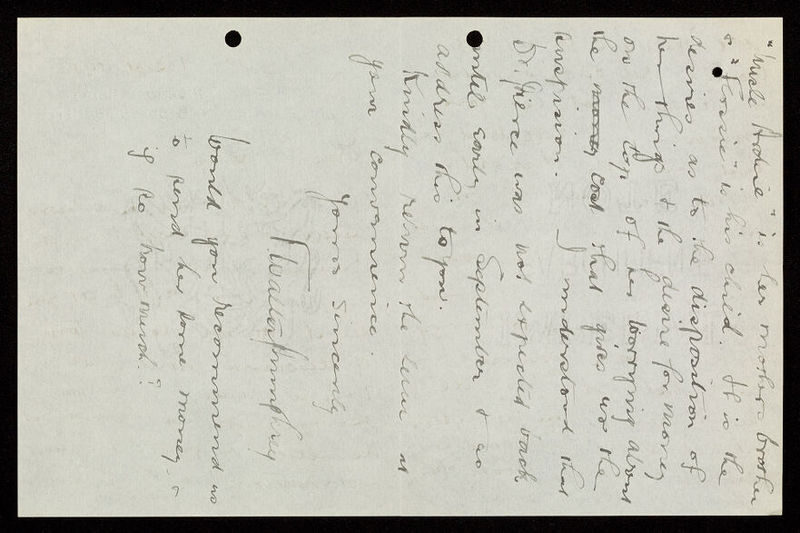 "Uncle Archie" is her mother's brother
& "Flossie" is his child. It is the
desires as to the disposition of
her things & the desire for money
on the top of her worrying about
the money cost that gives us the
suspicion. I understand that
Dr. Pierce was not expected back
until early in September & so
address this to you.
Kindly return the letter at
your convenience.
Yours sincerely
Walter Humphrey
Would you recommend us
to send her some money &
if so how much?